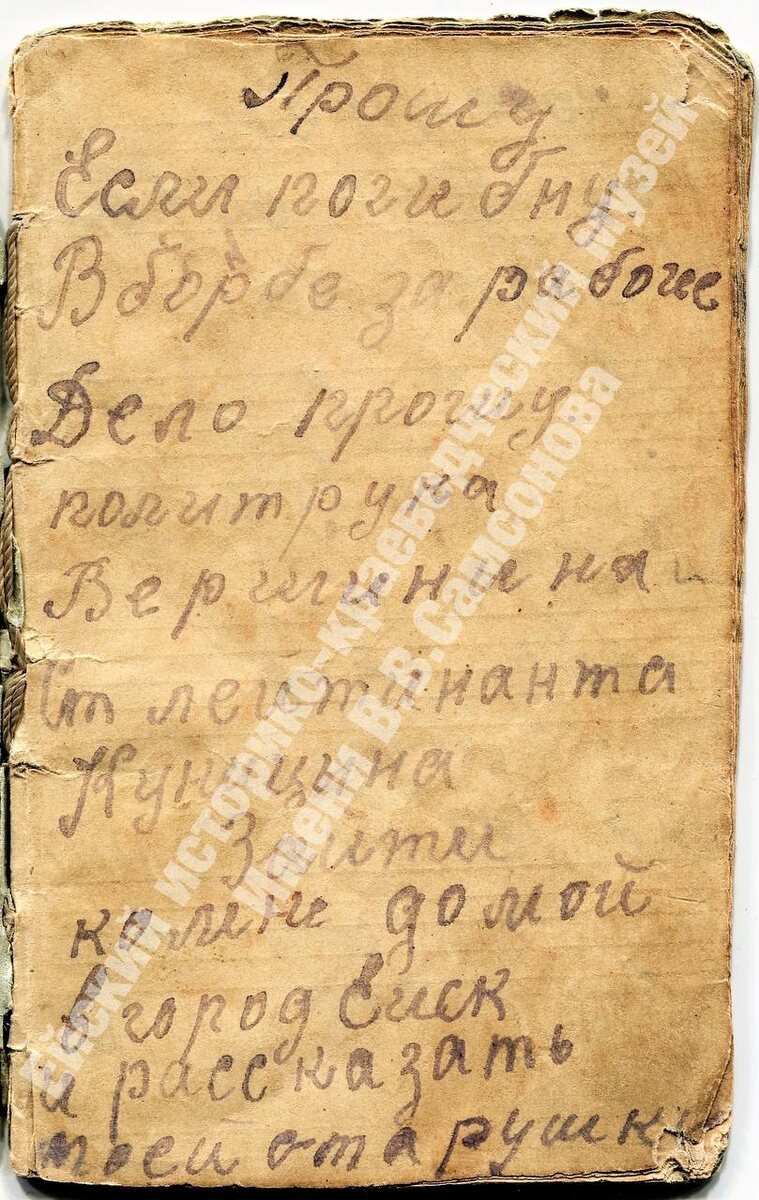 Прошу
Если погибну
В борбе за рабоче
Дело прошу
политрука
Веригина на
Ст лейтинанта
Куницина
Зайти
комне домой
В город Еиск
и рассказать
моей старушке
Ейский историко-краеведческий музей
Имени В.В.Самсонова